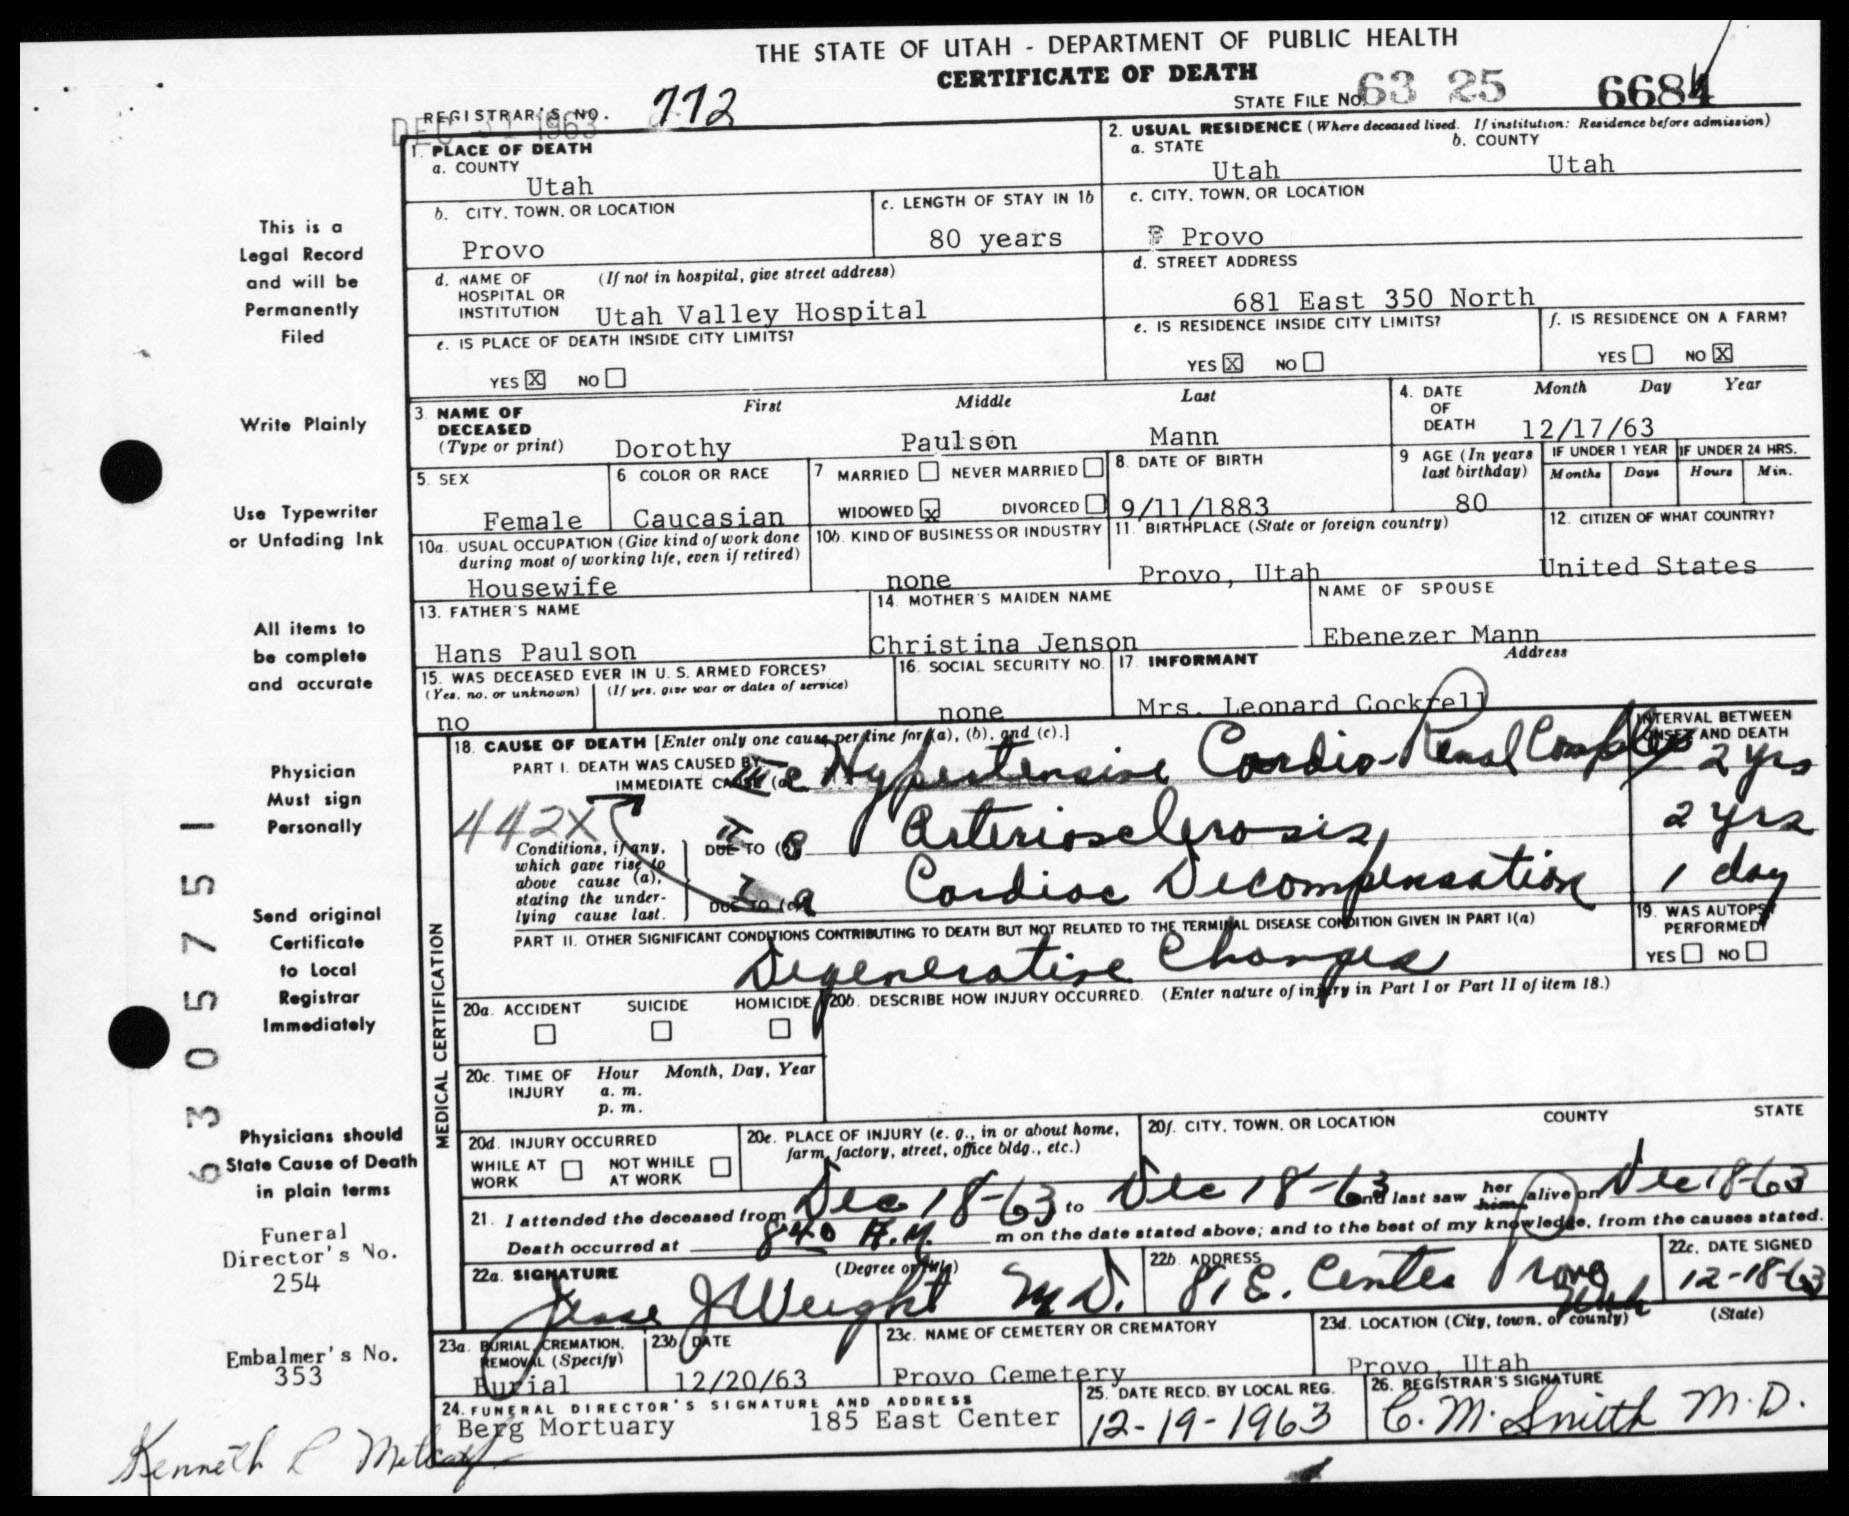 THE STATE OF UTAH - DEPARTMENT OF PUBLIC HEALTH
CERTIFICATE OF DEATH
STATE FILE NO. 63 25 6684
REGISTRAR'S NO. 772
DEC 31 1963
1. PLACE OF DEATH
a. COUNTY
Utah
2. USUAL RESIDENCE (Where deceased lived. If institution: Residence before admission)
a. STATE b. COUNTY
Utah Utah
b. CITY, TOWN, OR LOCATION
Provo
c. LENGTH OF STAY IN 1b
80 years
c. CITY, TOWN, OR LOCATION
Provo
d. NAME OF HOSPITAL OR INSTITUTION (If not in hospital, give street address)
Utah Valley Hospital
d. STREET ADDRESS
681 East 350 North
e. IS PLACE OF DEATH INSIDE CITY LIMITS?
YES X NO
e. IS RESIDENCE INSIDE CITY LIMITS?
YES X NO
f. IS RESIDENCE ON A FARM?
YES NO X
3. NAME OF DECEASED (Type or print)
First Middle Last
Dorothy Paulson Mann
4. DATE OF DEATH
Month Day Year
12/17/63
5. SEX
Female
6 COLOR OR RACE
Caucasian
7 MARRIED NEVER MARRIED
WIDOWED x DIVORCED
8. DATE OF BIRTH
9/11/1883
9 AGE (In years last birthday)
80
IF UNDER 1 YEAR
Months Days
IF UNDER 24 HRS.
Hours Min.
10a. USUAL OCCUPATION (Give kind of work done during most of working life, even if retired)
Housewife
10b. KIND OF BUSINESS OR INDUSTRY
none
11. BIRTHPLACE (State or foreign country)
Provo, Utah
12. CITIZEN OF WHAT COUNTRY?
United States
13. FATHER'S NAME
Hans Paulson
14. MOTHER'S MAIDEN NAME
Christina Jenson
NAME OF SPOUSE
Ebenezer Mann
15. WAS DECEASED EVER IN U. S. ARMED FORCES?
(Yes, no, or unknown) (If yes, give war or dates of service)
no
16. SOCIAL SECURITY NO.
none
17. INFORMANT Address
Mrs. Leonard Cockrell
MEDICAL CERTIFICATION
18. CAUSE OF DEATH [Enter only one cause per line for (a), (b), and (c).]
INTERVAL BETWEEN ONSET AND DEATH
PART I. DEATH WAS CAUSED BY:
IMMEDIATE CAUSE (a) Hypertensive Cardio-Renal Complex 2 yrs
442X
Conditions, if any, which gave rise to above cause (a), stating the underlying cause last.
DUE TO (b) Arteriosclerosis 2 yrs
DUE TO (c) Cardiac Decompensation 1 day
PART II. OTHER SIGNIFICANT CONDITIONS CONTRIBUTING TO DEATH BUT NOT RELATED TO THE TERMINAL DISEASE CONDITION GIVEN IN PART I(a)
Degenerative Changes
19. WAS AUTOPSY PERFORMED?
YES NO
20a. ACCIDENT SUICIDE HOMICIDE
20b. DESCRIBE HOW INJURY OCCURRED. (Enter nature of injury in Part I or Part II of item 18.)
20c. TIME OF INJURY Hour Month, Day, Year
a. m.
p. m.
20d. INJURY OCCURRED
WHILE AT WORK NOT WHILE AT WORK
20e. PLACE OF INJURY (e. g., in or about home, farm, factory, street, office bldg., etc.)
20f. CITY, TOWN, OR LOCATION COUNTY STATE
21. I attended the deceased from Dec 18-63 to Dec 18-63 and last saw her him alive on Dec 18-63
Death occurred at 840 A.M. m on the date stated above; and to the best of my knowledge, from the causes stated.
22a. SIGNATURE (Degree or title)
Jesse J Weight M.D.
22b. ADDRESS
81 E. Center Provo Utah
22c. DATE SIGNED
12-18-63
23a. BURIAL, CREMATION, REMOVAL (Specify)
Burial
23b. DATE
12/20/63
23c. NAME OF CEMETERY OR CREMATORY
Provo Cemetery
23d. LOCATION (City, town, or county) (State)
Provo, Utah
24. FUNERAL DIRECTOR'S SIGNATURE AND ADDRESS
Berg Mortuary 185 East Center
25. DATE RECD. BY LOCAL REG.
12-19-1963
26. REGISTRAR'S SIGNATURE
C. M. Smith M.D.
This is a
Legal Record
and will be
Permanently
Filed
Write Plainly
Use Typewriter
or Unfading Ink
All items to
be complete
and accurate
Physician
Must sign
Personally
Send original
Certificate
to Local
Registrar
Immediately
Physicians should
State Cause of Death
in plain terms
Funeral
Director's No.
254
Embalmer's No.
353
Kenneth C Metcalf
6305751